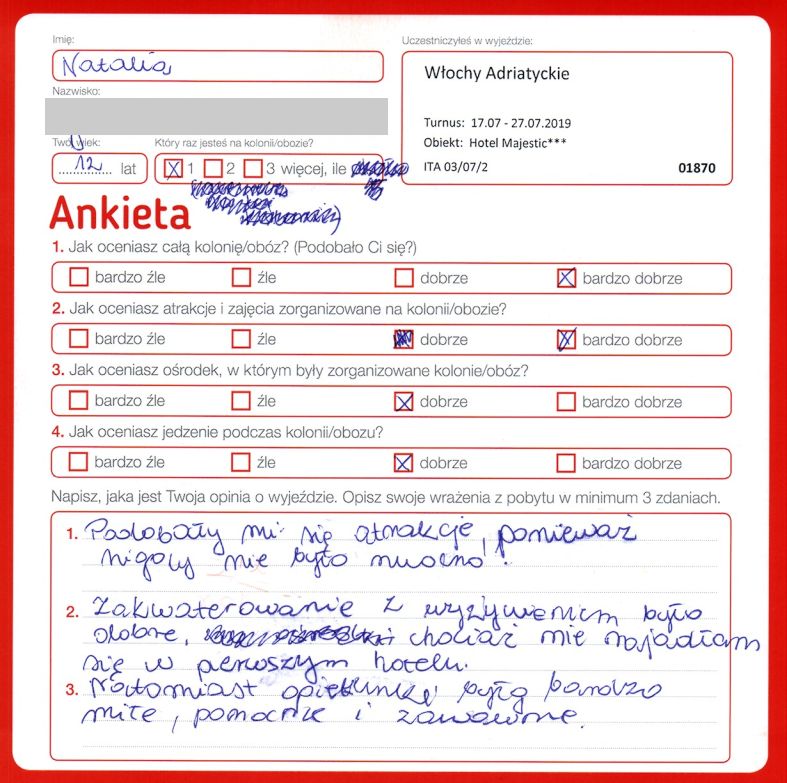 Imię:
Natalia
Nazwisko:
Twój wiek:
12 lat
Który raz jesteś na kolonii/obozie?
1 2 3 więcej, ile
Uczestniczyłeś w wyjeździe:
Włochy Adriatyckie
Turnus: 17.07 - 27.07.2019
Obiekt: Hotel Majestic***
ITA 03/07/2 01870
Ankieta
1. Jak oceniasz całą kolonię/obóz? (Podobało Ci się?)
bardzo źle źle dobrze bardzo dobrze
2. Jak oceniasz atrakcje i zajęcia zorganizowane na kolonii/obozie?
bardzo źle źle dobrze bardzo dobrze
3. Jak oceniasz ośrodek, w którym były zorganizowane kolonie/obóz?
bardzo źle źle dobrze bardzo dobrze
4. Jak oceniasz jedzenie podczas kolonii/obozu?
bardzo źle źle dobrze bardzo dobrze
Napisz, jaka jest Twoja opinia o wyjeździe. Opisz swoje wrażenia z pobytu w minimum 3 zdaniach.
1. Podobały mi się atrakcje, ponieważ
nigdy nie było nudno!
2. Zakwaterowanie z wyżywieniem było
dobre, chociaż nie najadłam
się w pierwszym hotelu.
3. Natomiast opiekunki były bardzo
miłe, pomocne i zabawne.